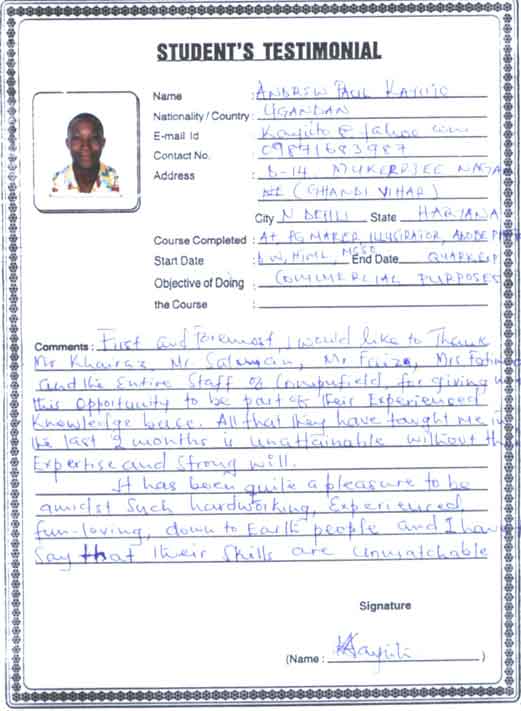 STUDENT'S TESTIMONIAL
Name : ANDREW PAUL KAYIITO
Nationality / Country : UGANDAN
E-mail Id : @ yahoo com
Contact No. : 09871683987
Address : D-14, MUKERPJEE NAGA
(GHANDI VIHAR)
City N DEHLI State HARIANA
Course Completed : PG MAKER ILLUSTRATOR, ADOBE
Start Date : HTML, End Date QUARKEXP
Objective of Doing : COMMERCIAL PURPOSES
the Course :
Comments : First and Foremost, I would like to Thank
Mr Khairaz, Mr Salman, Mr Faiza, Mrs Fatima
and the Entire Staff of Compufield, for giving
this Opportunity to be part of their Experienced
Knowledge base. All that they have taught me in
the last 2 months is unattainable without th
Expertise and Strong will.
It has been quite a pleasure to be
amidst Such hardworking, Experienced,
fun-loving, down to Earth people and I have
Say that their Skills are unmatchable
Signature
(Name : )